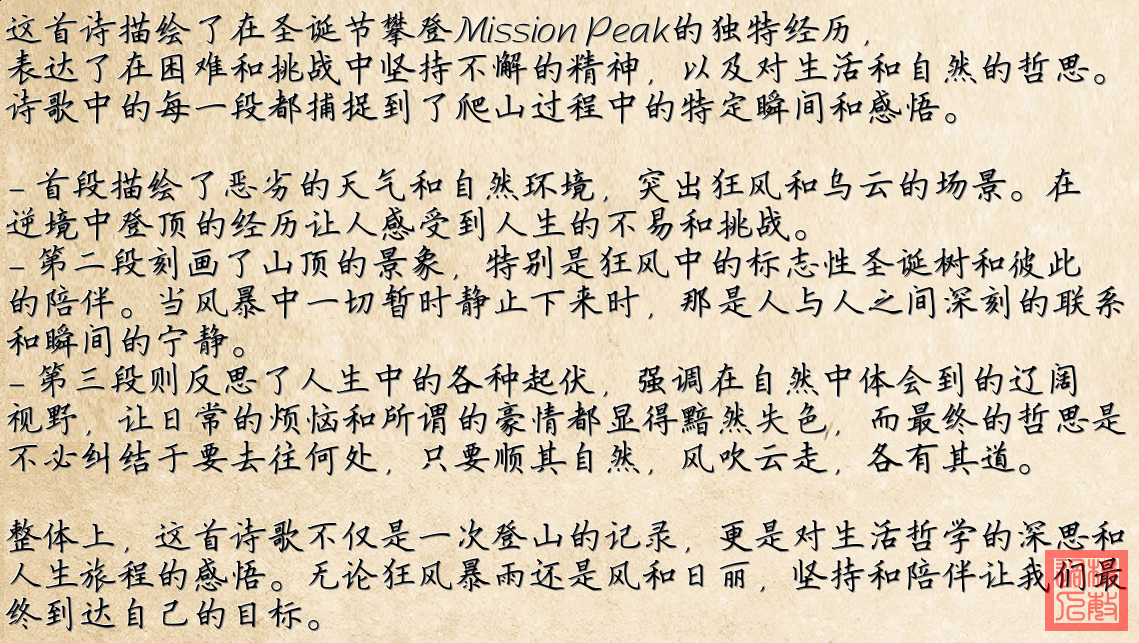 这首诗描绘了在圣诞节攀登Mission Peak的独特经历，
表达了在困难和挑战中坚持不懈的精神，以及对生活和自然的哲思。
诗歌中的每一段都捕捉到了爬山过程中的特定瞬间和感悟。
- 首段描绘了恶劣的天气和自然环境，突出狂风和乌云的场景。在
逆境中登顶的经历让人感受到人生的不易和挑战。
- 第二段刻画了山顶的景象，特别是狂风中的标志性圣诞树和彼此
的陪伴。当风暴中一切暂时静止下来时，那是人与人之间深刻的联系
和瞬间的宁静。
- 第三段则反思了人生中的各种起伏，强调在自然中体会到的辽阔
视野，让日常的烦恼和所谓的豪情都显得黯然失色，而最终的哲思是
不必纠结于要去往何处，只要顺其自然，风吹云走，各有其道。
整体上，这首诗歌不仅是一次登山的记录，更是对生活哲学的深思和
人生旅程的感悟。无论狂风暴雨还是风和日丽，坚持和陪伴让我们最
终到达自己的目标。